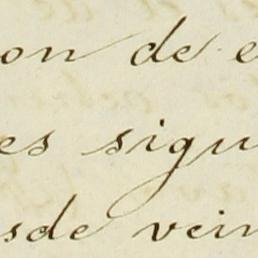 on de e
es sigu
sde vein